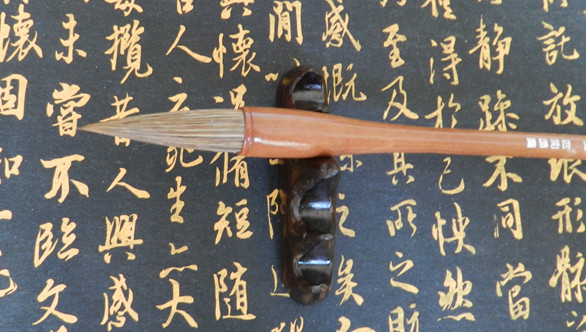 託放浪形骸
靜躁不同當
得於己怏然
至及其所之既
感慨係之矣
閒
興懷況脩短隨
古人云死生亦大
攬昔人興感
未嘗不臨文
懷固知一